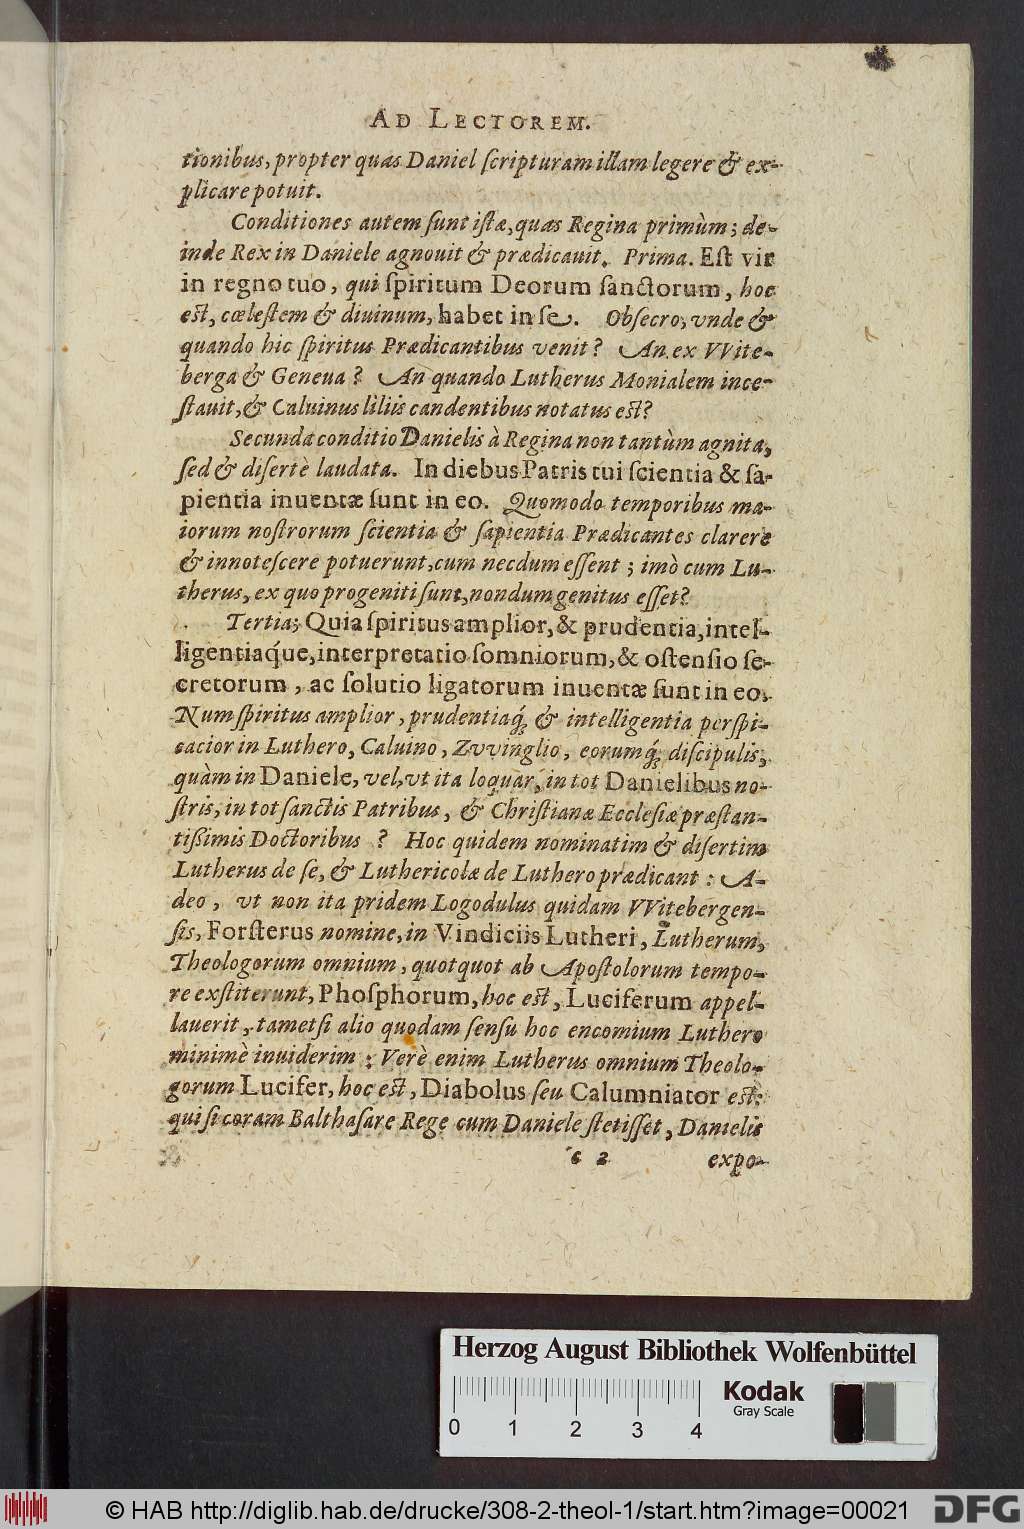 AD LECTOREM.
tionibus, propter quas Daniel ſcripturam illam legere & ex-
plicare potuit.
Conditiones autem ſunt iſtæ, quas Regina primùm; de-
inde Rex in Daniele agnouit & prædicauit. Prima. Eſt vir
in regno tuo, qui ſpiritum Deorum ſanctorum, hoc
eſt, cœleſtem & diuinum, habet in ſe. Obſecro, vnde &
quando hic ſpiritus Prædicantibus venit? An ex VVite-
berga & Geneua? An quando Lutherus Monialem ince-
ſtauit, & Caluinus liliis candentibus notatus eſt?
Secunda conditio Danielis à Regina non tantùm agnita,
ſed & diſertè laudata. In diebus Patris tui ſcientia & ſa-
pientia inuentæ ſunt in eo. Quomodo temporibus ma-
iorum noſtrorum ſcientia & ſapientia Prædicantes clarere
& innoteſcere potuerunt, cum necdum eſſent; imò cum Lu-
therus, ex quo progeniti ſunt, nondum genitus eſſet?
Tertia; Quia ſpiritus amplior, & prudentia, intel-
ligentiaq́ue, interpretatio ſomniorum, & oſtenſio ſe-
cretorum, ac ſolutio ligatorum inuentæ ſunt in eo.
Num ſpiritus amplior, prudentiaq́; & intelligentia perſpi-
cacior in Luthero, Caluino, Zvvinglio, eorumq́; diſcipulis,
quàm in Daniele, vel, vt ita loquar, in tot Danielibus no-
ſtris, in tot ſanctis Patribus, & Chriſtianæ Eccleſiæ præſtan-
tißimis Doctoribus? Hoc quidem nominatim & diſertim
Lutherus de ſe, & Luthericolæ de Luthero prædicant: A-
deo, vt non ita pridem Logodulus quidam VVitebergen-
ſis, Forſterus nomine, in Vindiciis Lutheri, Lutherum,
Theologorum omnium, quotquot ab Apoſtolorum tempo-
re exſtiterunt, Phoſphorum, hoc eſt, Luciferum appel-
lauerit, tametſi alio quodam ſenſu hoc encomium Luthero
minimè inuiderim: Verè enim Lutherus omnium Theolo-
gorum Lucifer, hoc eſt, Diabolus ſeu Calumniator eſt:
qui ſi coram Balthaſare Rege cum Daniele ſtetiſſet, Danielis
c 2 expo-
Herzog August Bibliothek Wolfenbüttel
0 1 2 3 4
Kodak
Gray Scale
© HAB http://diglib.hab.de/drucke/308-2-theol-1/start.htm?image=00021
DFG